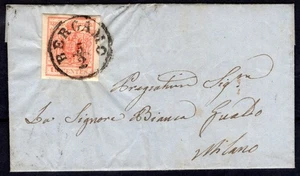 BERGAMO
5
Pregiatma Sigra
La Signora Bianca Gualdo
Milano